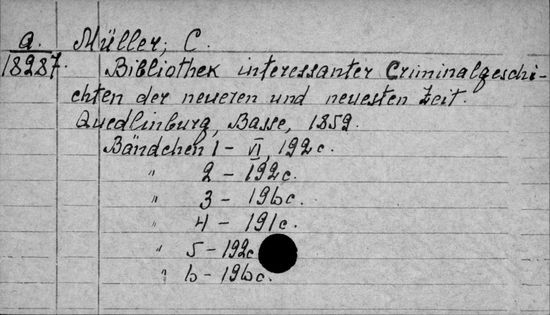 a. Müller, C.
18287. Bibliothek interessanter Criminalgeschi-
chten der neueren und neuesten Zeit.
Quedlinburg, Basse, 1859.
Bändchen 1 - VI, 192 c.
" 2 - 192 c.
" 3 - 196 c.
" 4 - 191 c.
" 5 - 192 c
" 6 - 196 c.